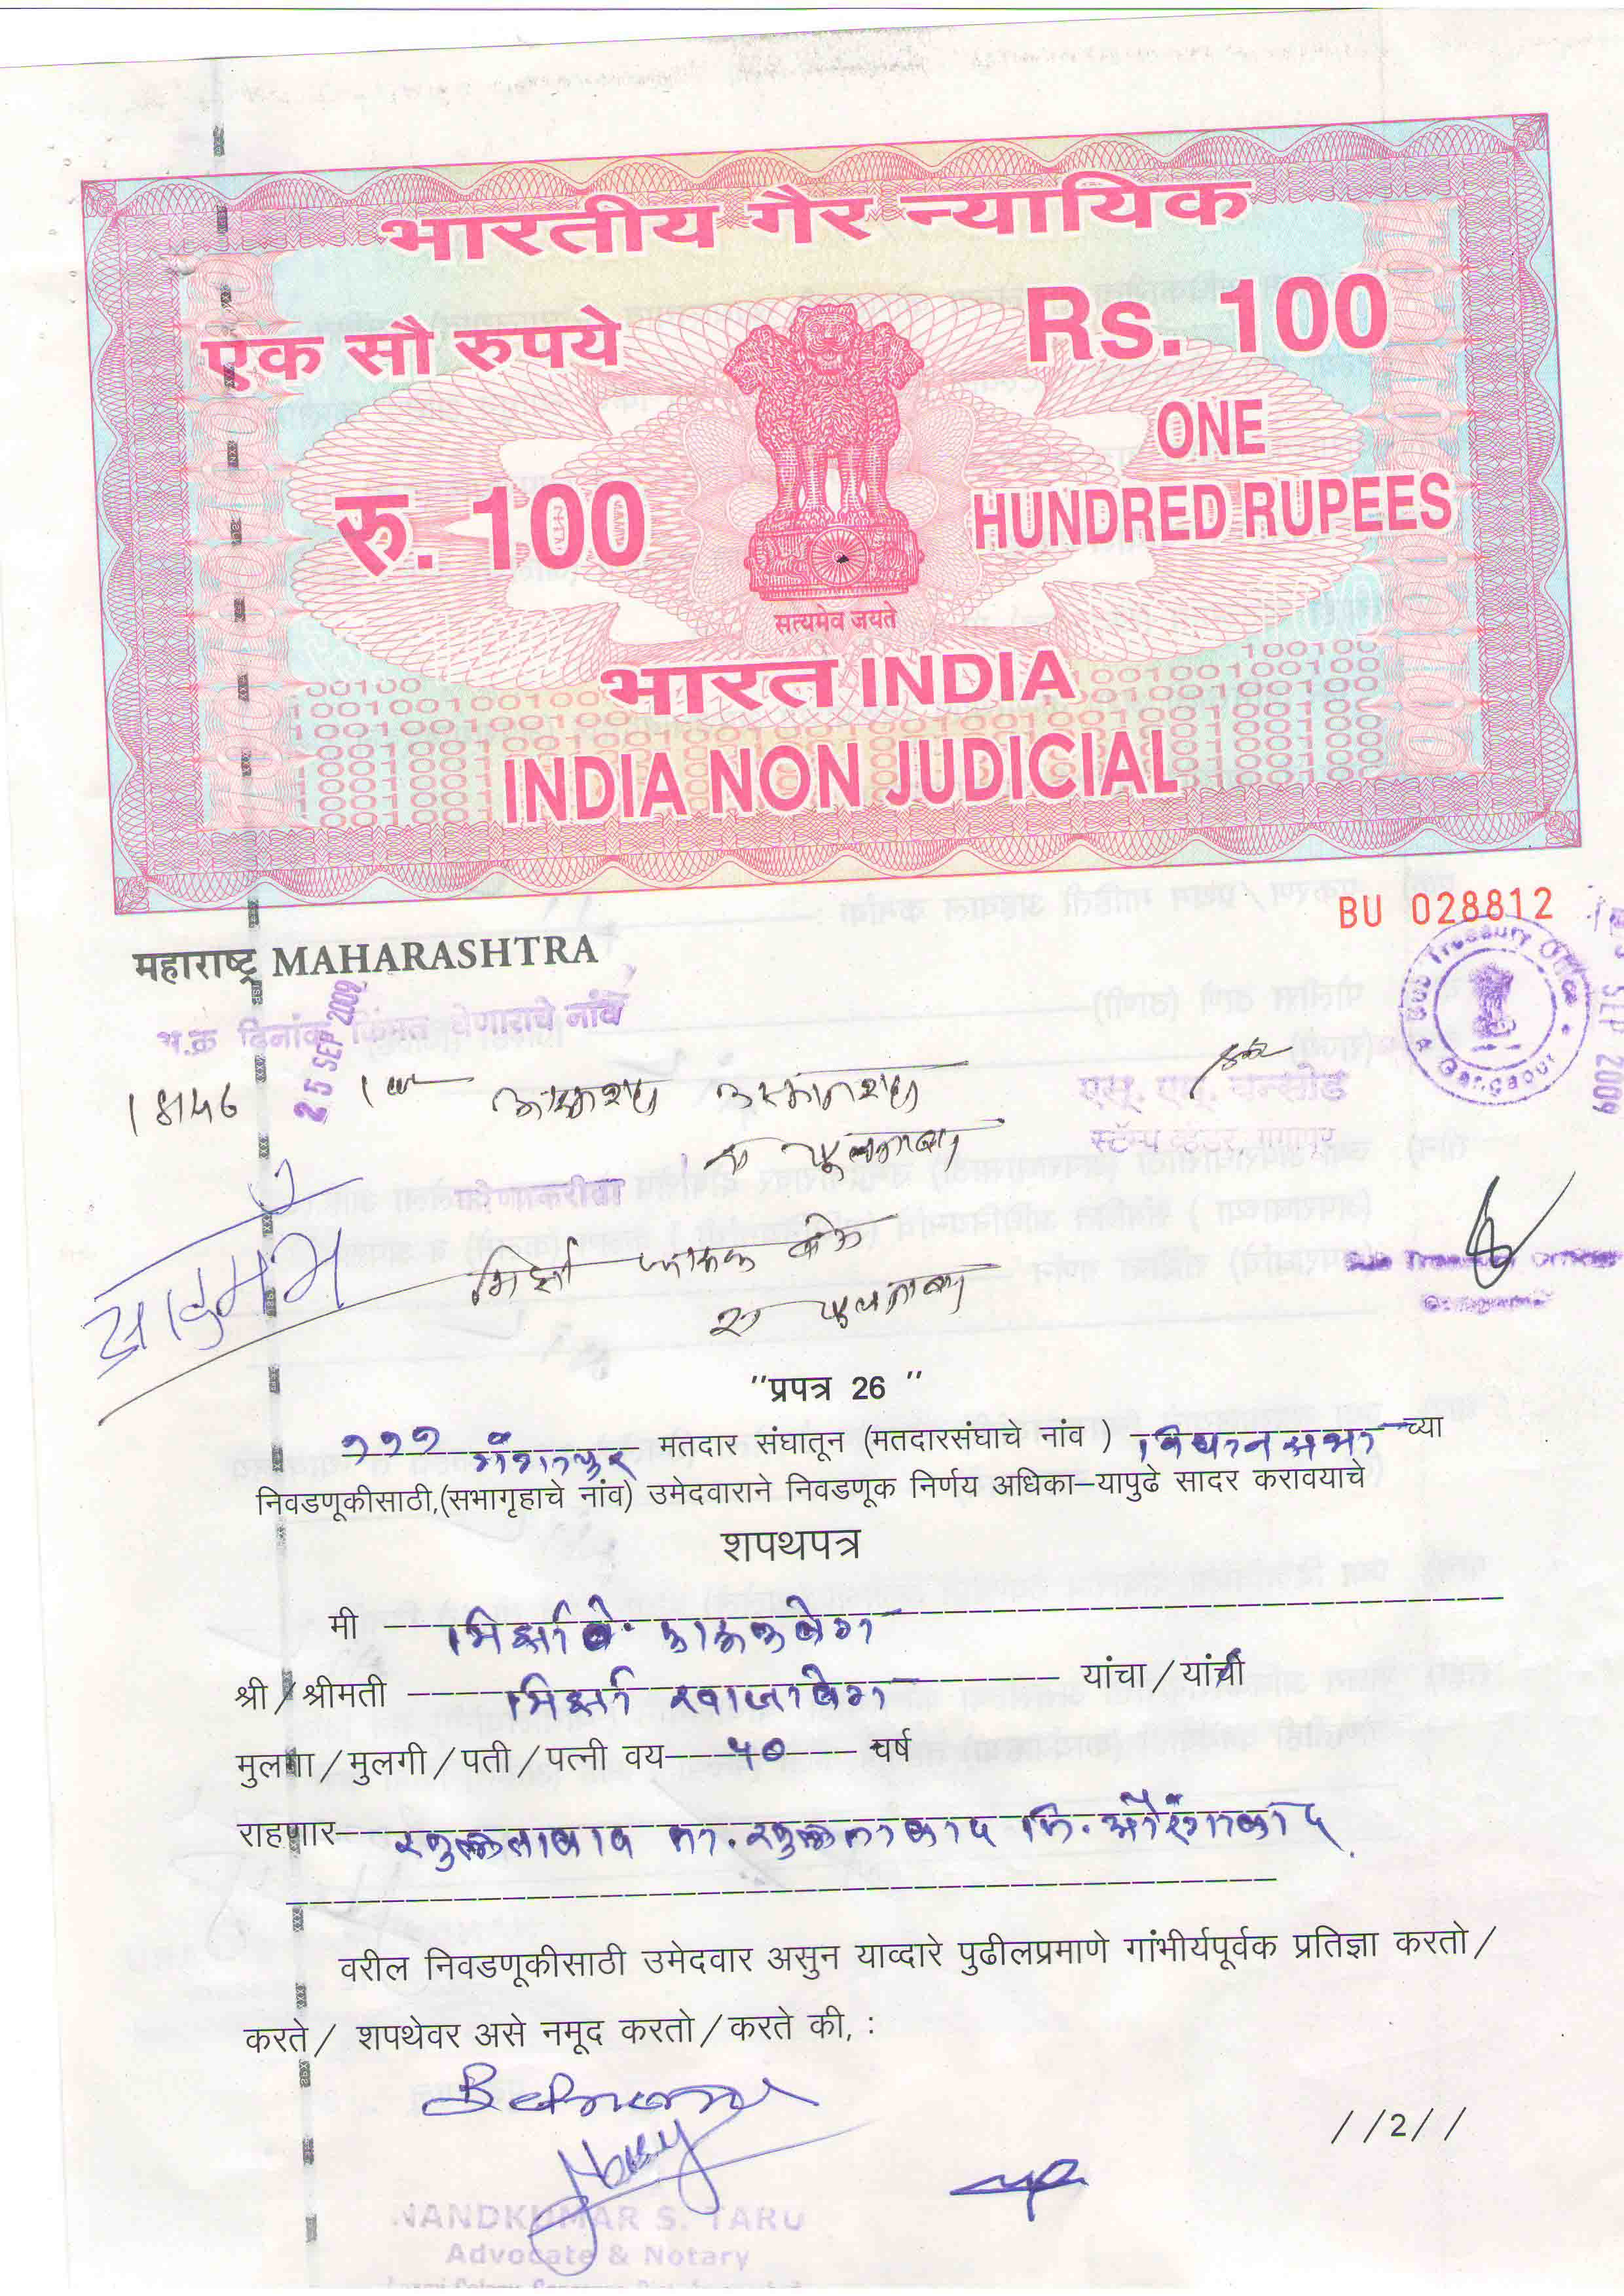 भारतीय गैर न्यायिक
एक सौ रुपये
Rs. 100
ONE
HUNDRED RUPEES
रु. 100
सत्यमेव जयते
भारत INDIA
INDIA NON JUDICIAL
BU 028812
महाराष्ट्र MAHARASHTRA
अ.क्र दिनांक किंमत घेणाराचे नांव
25 SEP 2009
Sub Treasury Office
Gangapur
SEP 2009
18146
स्टॅम्प व्हेंडर, गंगापूर
Sub Treasury Officer
Gangapur
"प्रपत्र 26 "
१११ गंगापुर मतदार संघातून (मतदारसंघाचे नांव ) विधानसभा च्या
निवडणूकीसाठी,(सभागृहाचे नांव) उमेदवाराने निवडणूक निर्णय अधिका-यापुढे सादर करावयाचे
शपथपत्र
मी मिर्झा फारूक बेग
श्री / श्रीमती मिर्झा ख्वाजा बेग यांचा / यांची
मुलगा / मुलगी / पती / पत्नी वय ५० वर्ष
राहणार खुलताबाद ता. खुलताबाद जि. औरंगाबाद
वरील निवडणूकीसाठी उमेदवार असुन याव्दारे पुढीलप्रमाणे गांभीर्यपूर्वक प्रतिज्ञा करतो /
करते / शपथेवर असे नमूद करतो / करते की, :
//2//
NANDKUMAR S. TARU
Advocate & Notary